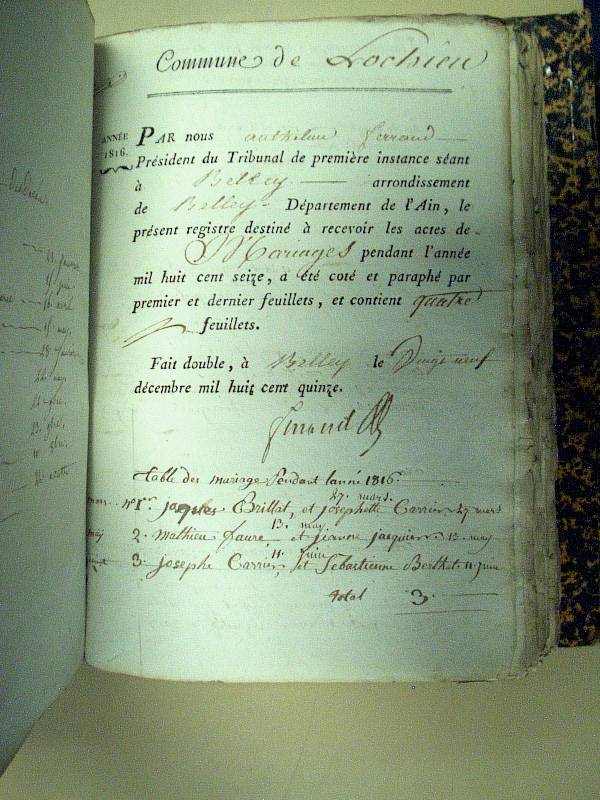 Commune de Lochieu
ANNÉE
1816.
PAR nous anthelme ferrand
Président du Tribunal de première instance séant
à Belley arrondissement
de Belley Département de l'Ain, le
présent registre destiné à recevoir les actes de
Mariages pendant l'année
mil huit cent seize, a été coté et paraphé par
premier et dernier feuillets, et contient quatre
feuillets.
Fait double, à Belley le vingt neuf
décembre mil huit cent quinze.
ferrand
table des mariage pendant l'année 1816.
27. mars.
nº 1er. jaques Brillat, et josephette Carrier 27 mars
13. may
2. mathieu faure, et jeanne jacquier 13. may
11. juin
3. josephe Carrier, et Sebastienne Berthet 11. juin
total 3.